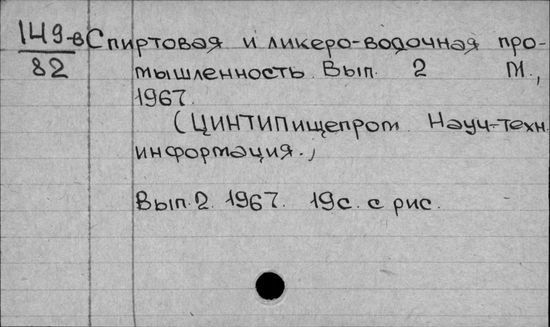 149-в Спиртовая и ликеро-водочная про-
82 мышленность. Вып. 2 М.,
1967.
(ЦИНТИПищепром. Науч-техн.
информация.,
Вып. 2. 1967. 19с. с рис.